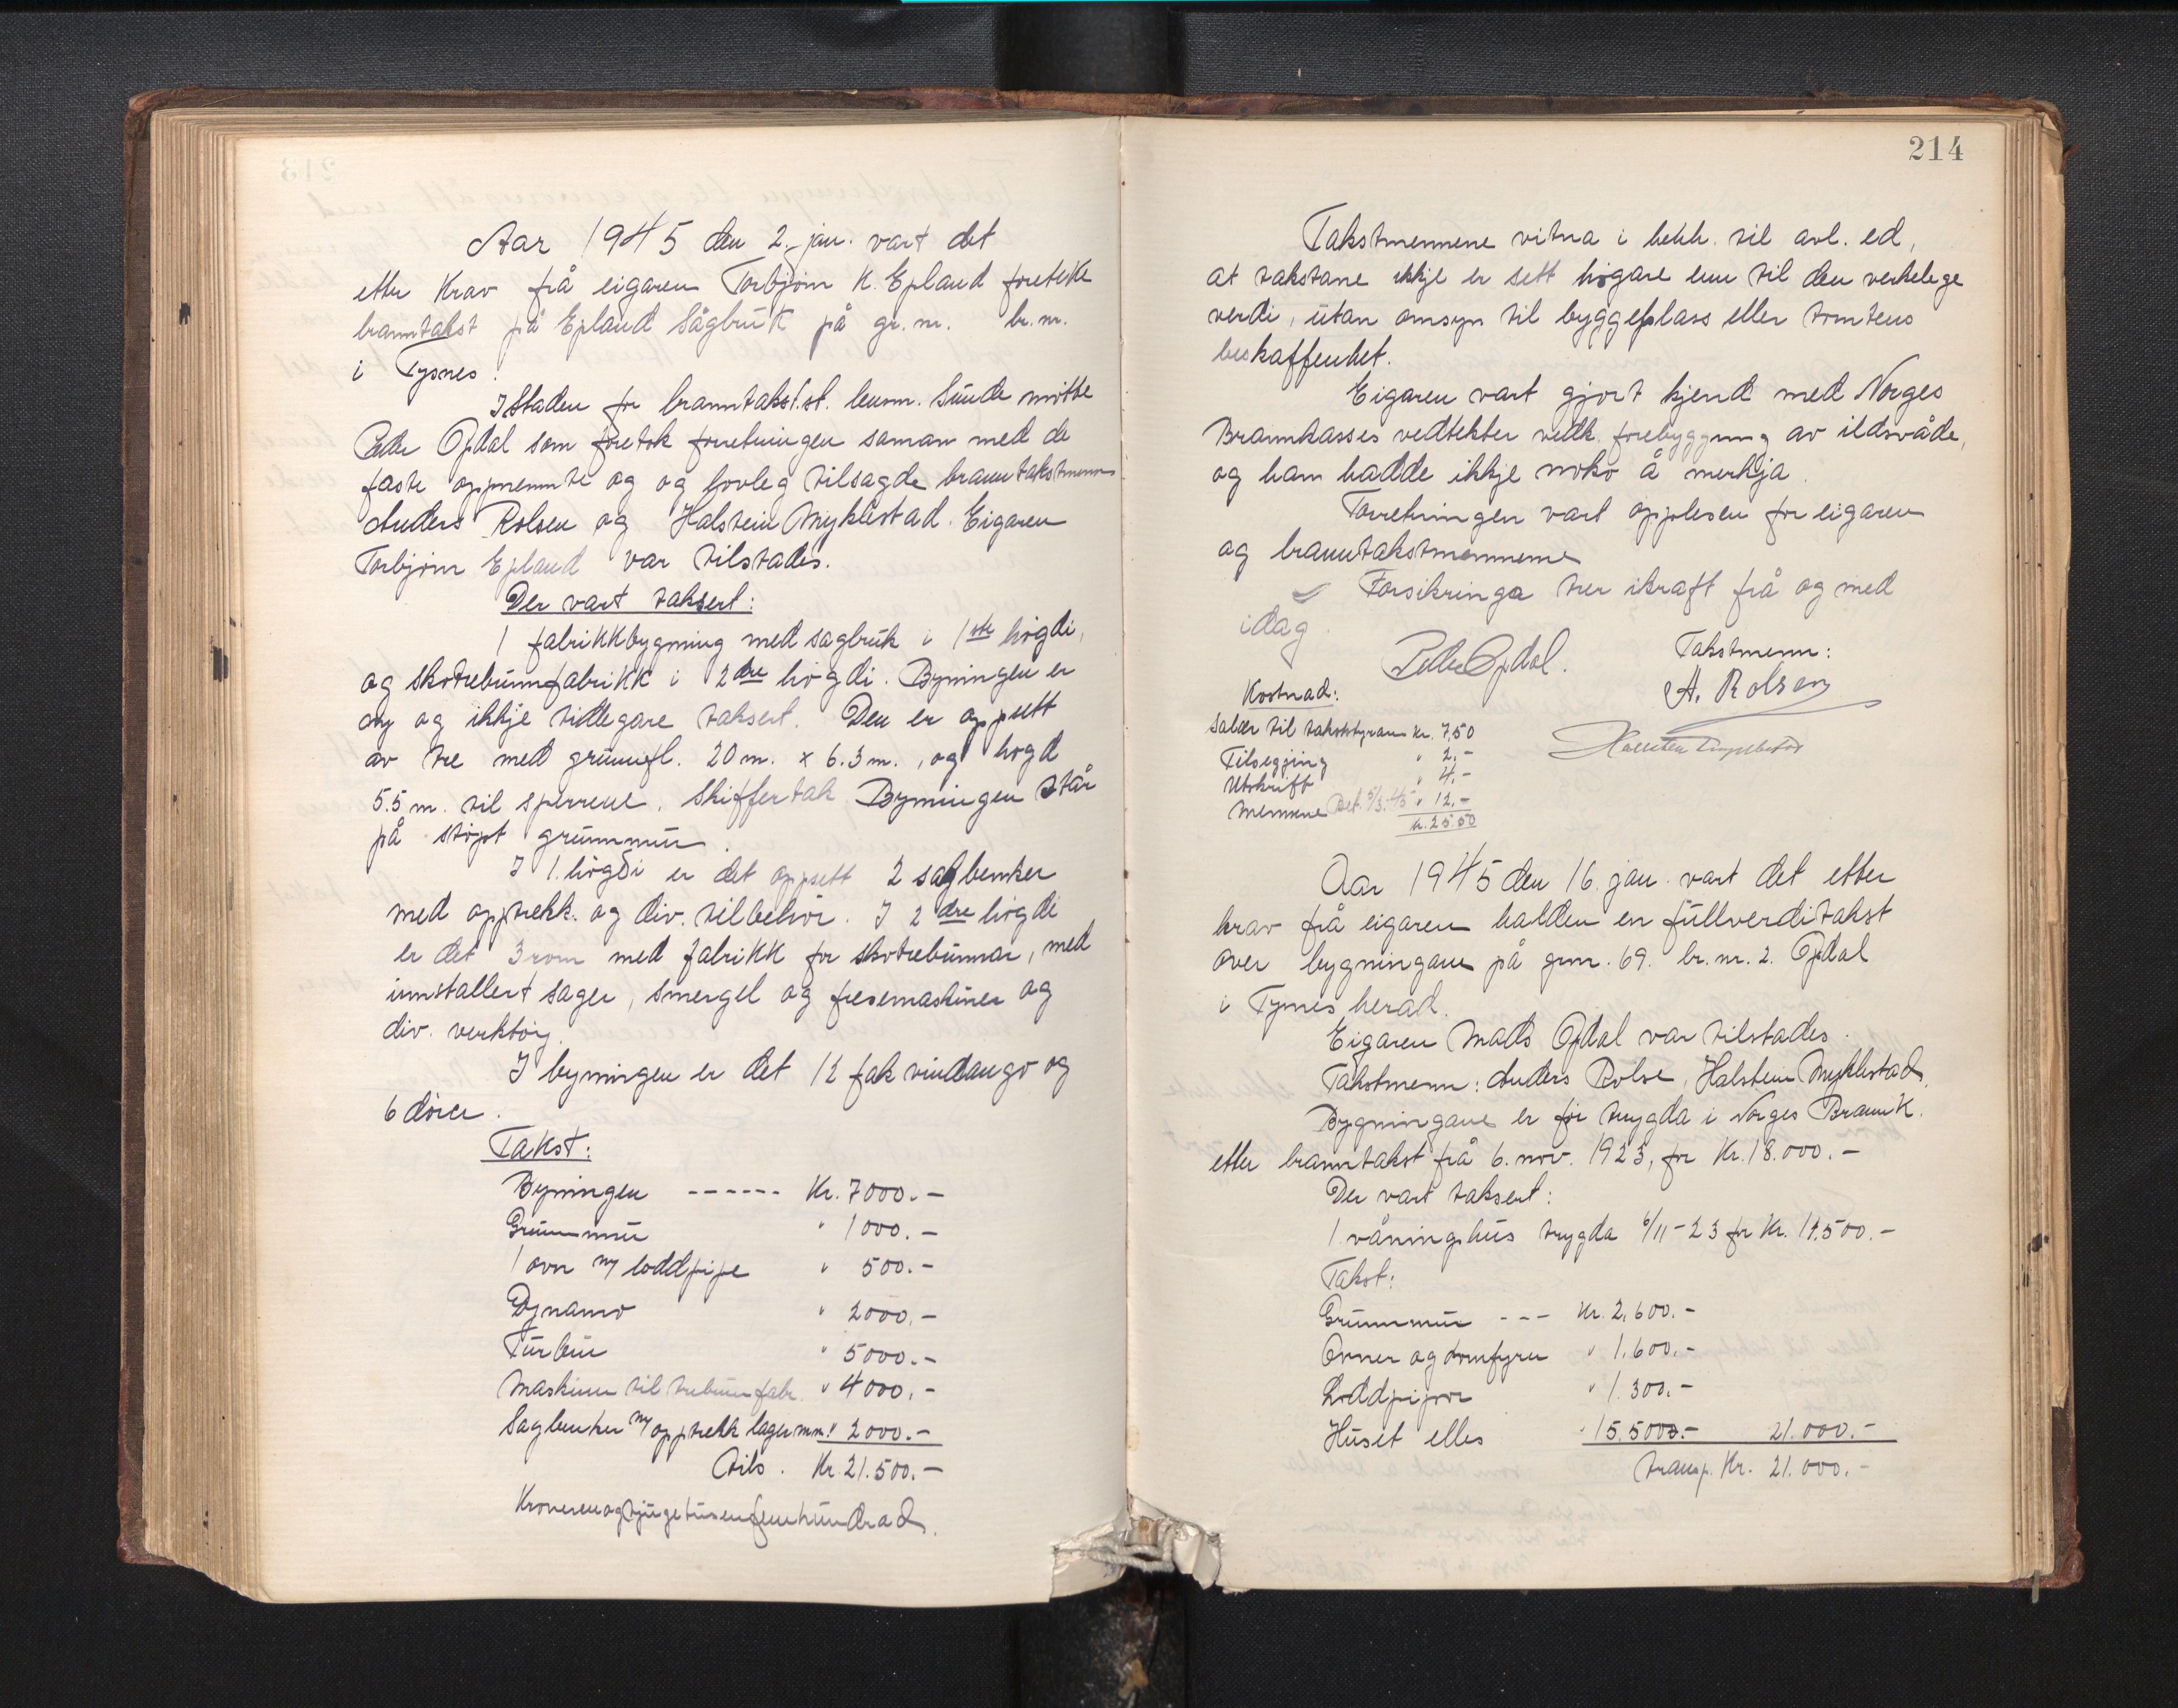 Aar 1945 den 2. jan. vart det
etter Krav frå eigaren Torbjørn K. Epland foreteke
branntakst på Epland Sågbruk på gr. nr. br. nr.
i Tysnes.
I Staden for branntakst.st. lensm. Sunde møtte
Peder Opdal som foretok forretningen saman med de
faste oppnemnte og og lovleg tilsagde branntakstmenn
Anders Rolsen og Halstein Myklestad. Eigaren
Torbjørn Epland var tilstades.
Der vart taksert:
1 fabrikkbygning med sagbruk i 1ste høgdi,
og skotrebunnfabrikk i 2dre høgdi. Byningen er
ny og ikkje tidlegare taksert. Den er oppsett
av tre med grunnfl. 20 m. x 6.3 m., og høgd
5.5 m. til sperrene. Skiffertak. Byningen står
på støpt grunnmur.
I 1. høgdi er det oppsett 2 sagbenker
med opptrekk. og div. tilbehør. I 2 dre høgdi
er det 3 rom med fabrikk for skotrebunnar, med
innstallert sager, smergel og fresemaskiner og
div. verktøy.
I byningen er det 12 fak vindaugo og
6 dører.
Takst:
Byningen ------ Kr. 7000.-
Grunnmur " 1000.-
1 ovn m/ loddpipe " 500.-
Dynamo " 2000.-
Turbin " 5000.-
Maskinn til trebunnfabr. " 4000.-
Sagbenker m/ opptrekk lager m.m. " 2000.-
Tils. Kr. 21.500.-
Kronerenogtjugetusenfemhundrad.
214
Takstmennene vitna i hehh. til avl. ed,
at takstane ikkje er sett høgare enn til den verkelege
verdi, utan omsyn til byggeplass eller tomtens
beskaffenhet.
Eigaren vart gjort kjend med Norges
Brannkasses vedtekter vedk. forebyggning av ildsvåde,
og han hadde ikkje noko å merkja.
Forretningen vart opplesen for eigaren
og branntakstmennene
Forsikringa trer ikraft frå og med
idag.
Peder Opdal. Takstmenn:
A. Rolsen
Halstein Myklestad
Kostnad:
Salær til takststyraren kr. 7,50
Tilsegjing " 2,-
Utskrift " 4.-
Mennene Bet. 5/3-45 " 12.-
kr. 25.50
Aar 1945 den 16. jan. vart det etter
krav frå eigaren halden en fullverditakst
over bygningane på gnr. 69. br. nr. 2. Opdal
i Tysnes herad.
Eigaren Mads Opdal var tilstades.
Takstmenn: Anders Rolse, Halstein Myklestad.
Bygningane er før trygda i Norges Brannk.
etter branntakst frå 6. nov. 1923, for Kr. 18.000.-
Der vart taksert:
1 våningshus trygda 6/11-23 for Kr. 14.500.-
Takst:
Grunnmur --- Kr. 2.600.-
Ovner og komfyrer " 1.600.-
Loddpipor " 1.300.-
Huset elles " 15.500.- 21.000.-
Transp. Kr. 21.000.-